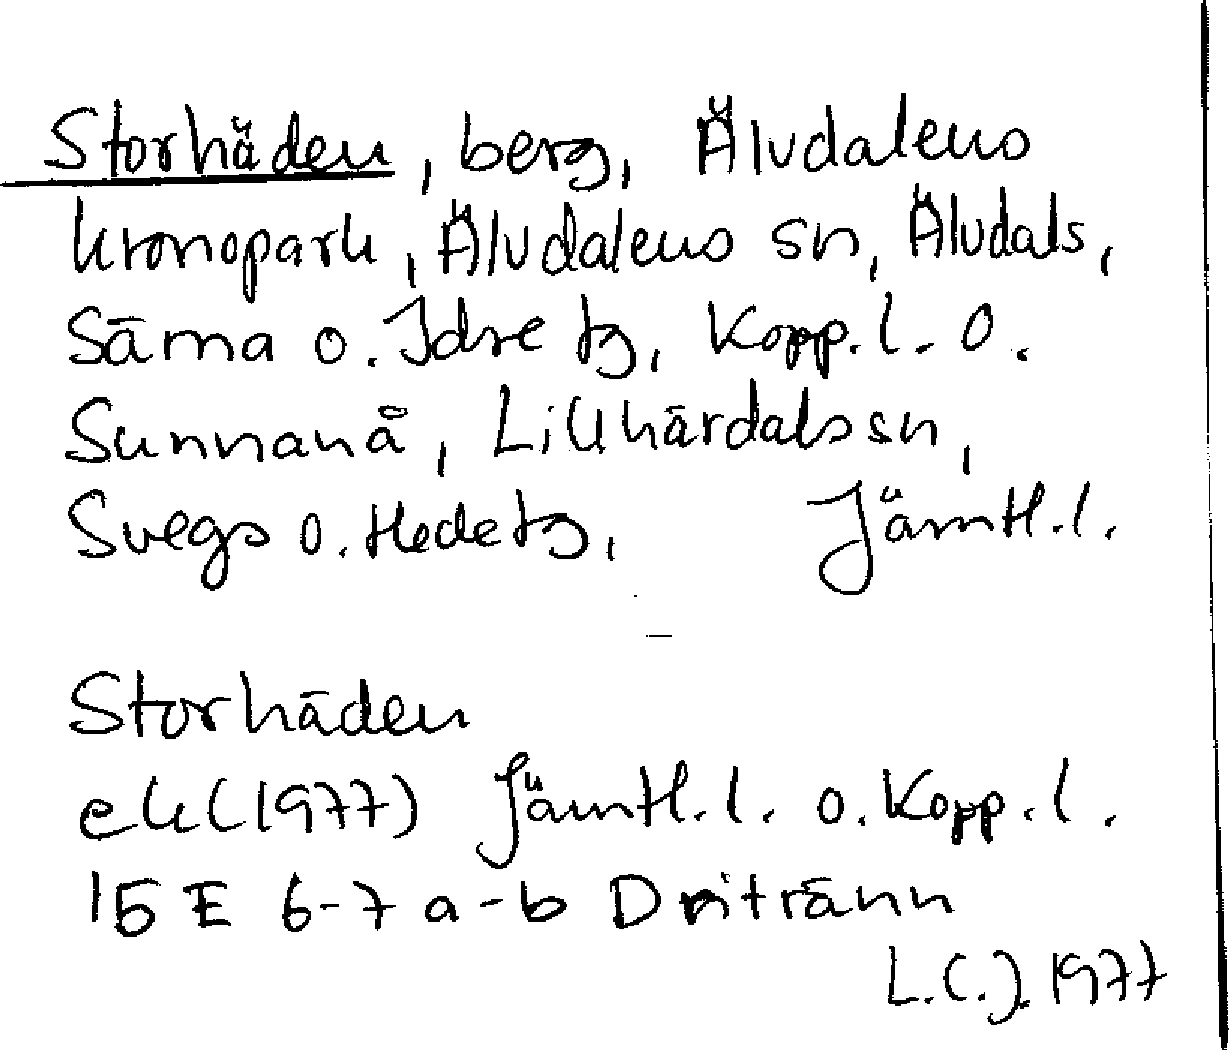 Storhäden, berg, Älvdalens
kronopark, Älvdalens sn, Älvdals,
Särna o. Idre tg, Kopp.l. o.
Sunnanå, Lillhärdals sn,
Svegs o. Hede tg, Jämtl.l.
Storhäden
ek (1977) Jämtl.l. o. Kopp.l.
15 E 6-7 a-b Dritränn
L.C.J. 1977